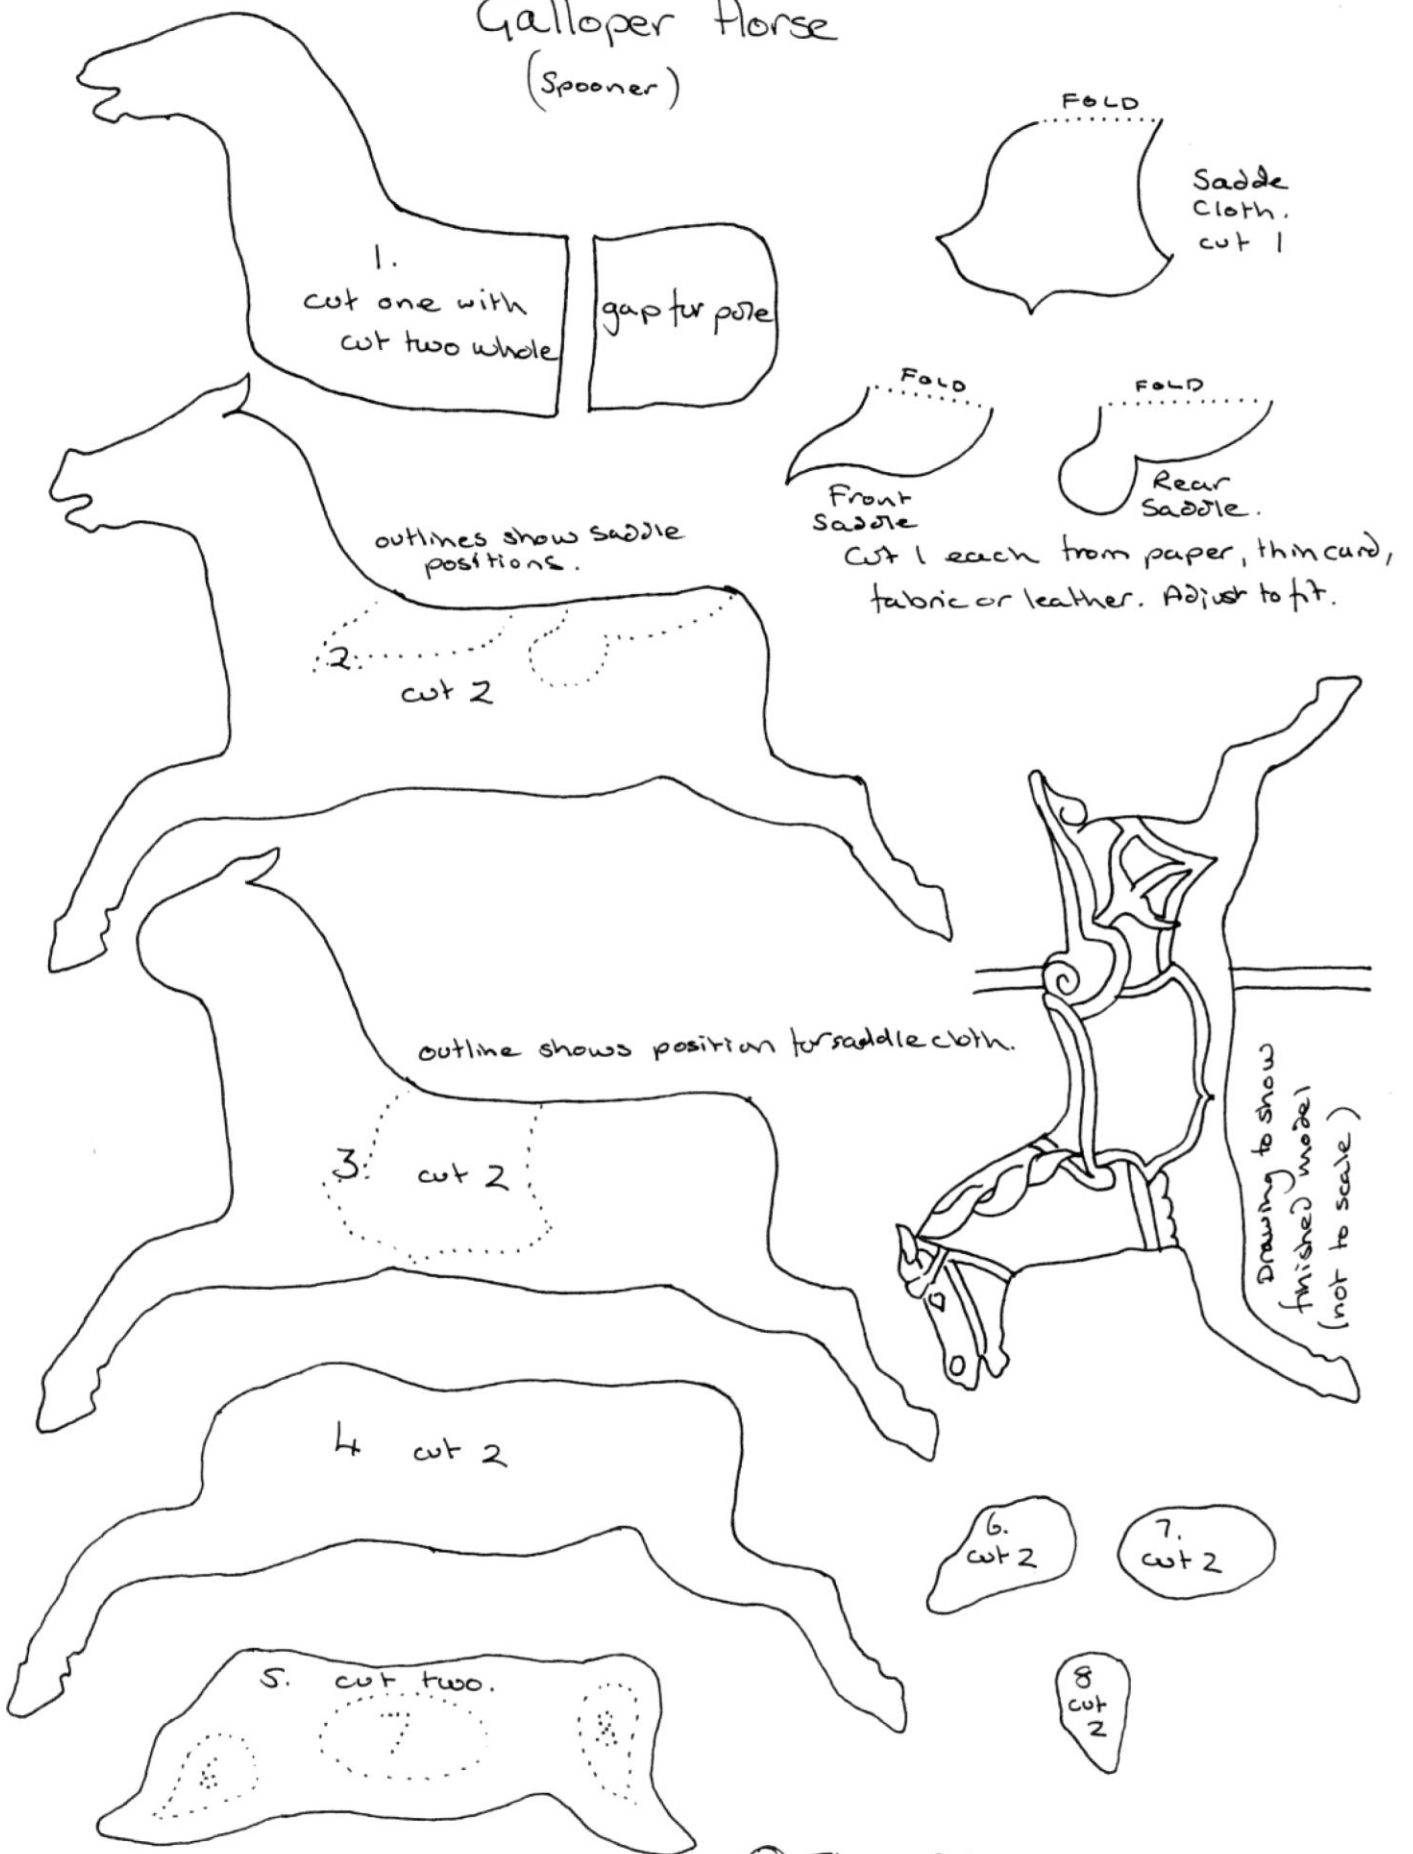 Galloper Horse
(Spooner)
FOLD
Sadde
Cloth.
cut 1
1.
cut one with
cut two whole
gap for pole
FOLD
FOLD
Front
Saddle
Rear
Saddle.
Cut 1 each from paper, thin card,
fabric or leather. Adjust to fit.
outlines show saddle
positions.
2.
cut 2
outline shows position for saddle cloth.
3.
cut 2
Drawing to show
finished model
(not to scale)
4 cut 2
6.
cut 2
7.
cut 2
5. cut two.
6
7
8
8
cut
2